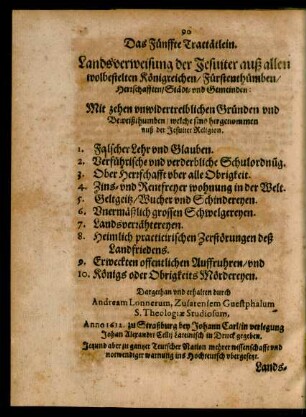 90
Das Fünffte Tractätlein.
Landsverweisung der Jesuiter auß allen
wolbestelten Königreichen/ Fürstenthümben/
Herrschafften/ Städt/ und Gemeinden:
Mit zehen unwidertreiblichen Gründen und
Beweißthumben/ welche sind hergenommen
auß der Jesuiter Religion.
1. Falscher Lehr und Glauben.
2. Verführische und verderbliche Schulordnūg.
3. Ober Herrschafft über alle Obrigkeit.
4. Zins- und Rentfreyer wohnung in der Welt.
5. Geltgeitz/ Wucher und Schindereyen.
6. Vnermäßlich grossen Schwelgereyen.
7. Landsverrähtereyen.
8. Heimlich practicirischen Zerstörungen deß
Landfriedens.
9. Erweckten offentlichen Auffruhren/ und
10. Königs oder Obrigkeits Mördereyen.
Dargethan und erhalten durch
Andream Lonnerum, Zusatensem Guestphalum
S. Theologiæ Studiosum.
Anno 1612. zu Straßburg bey Johann Carl/ in verlegung
Johan Alexandri Cellij Lateinisch in Druck gegeben.
Jetzund aber zu gantzer Teutscher Nation mehrer wissenschafft und
notwendiger warnung ins Hochteutsch übergesetzt.
Lands-